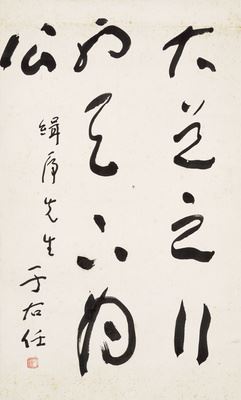 大道之行
也天下為
公
緝 先生
于右任